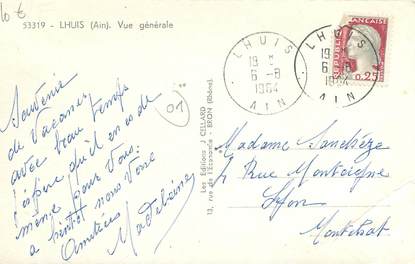 10 €
53319 - LHUIS (Ain). Vue générale
Souvenir
de Vacances
avec beau temps
j'espère qu'il en es de
même pour vous.
a bientôt nous vous
Amitiés Madeleine
01
Les Editions J. CELLARD
13, rue de l'Economie - BRON (Rhône)
LHUIS
6 -8
1964
AIN
LHUIS
1964
AIN
FRANÇAISE
0,25
Madame Sanchèze
2 Rue Montaigne
Lyon
Montchat